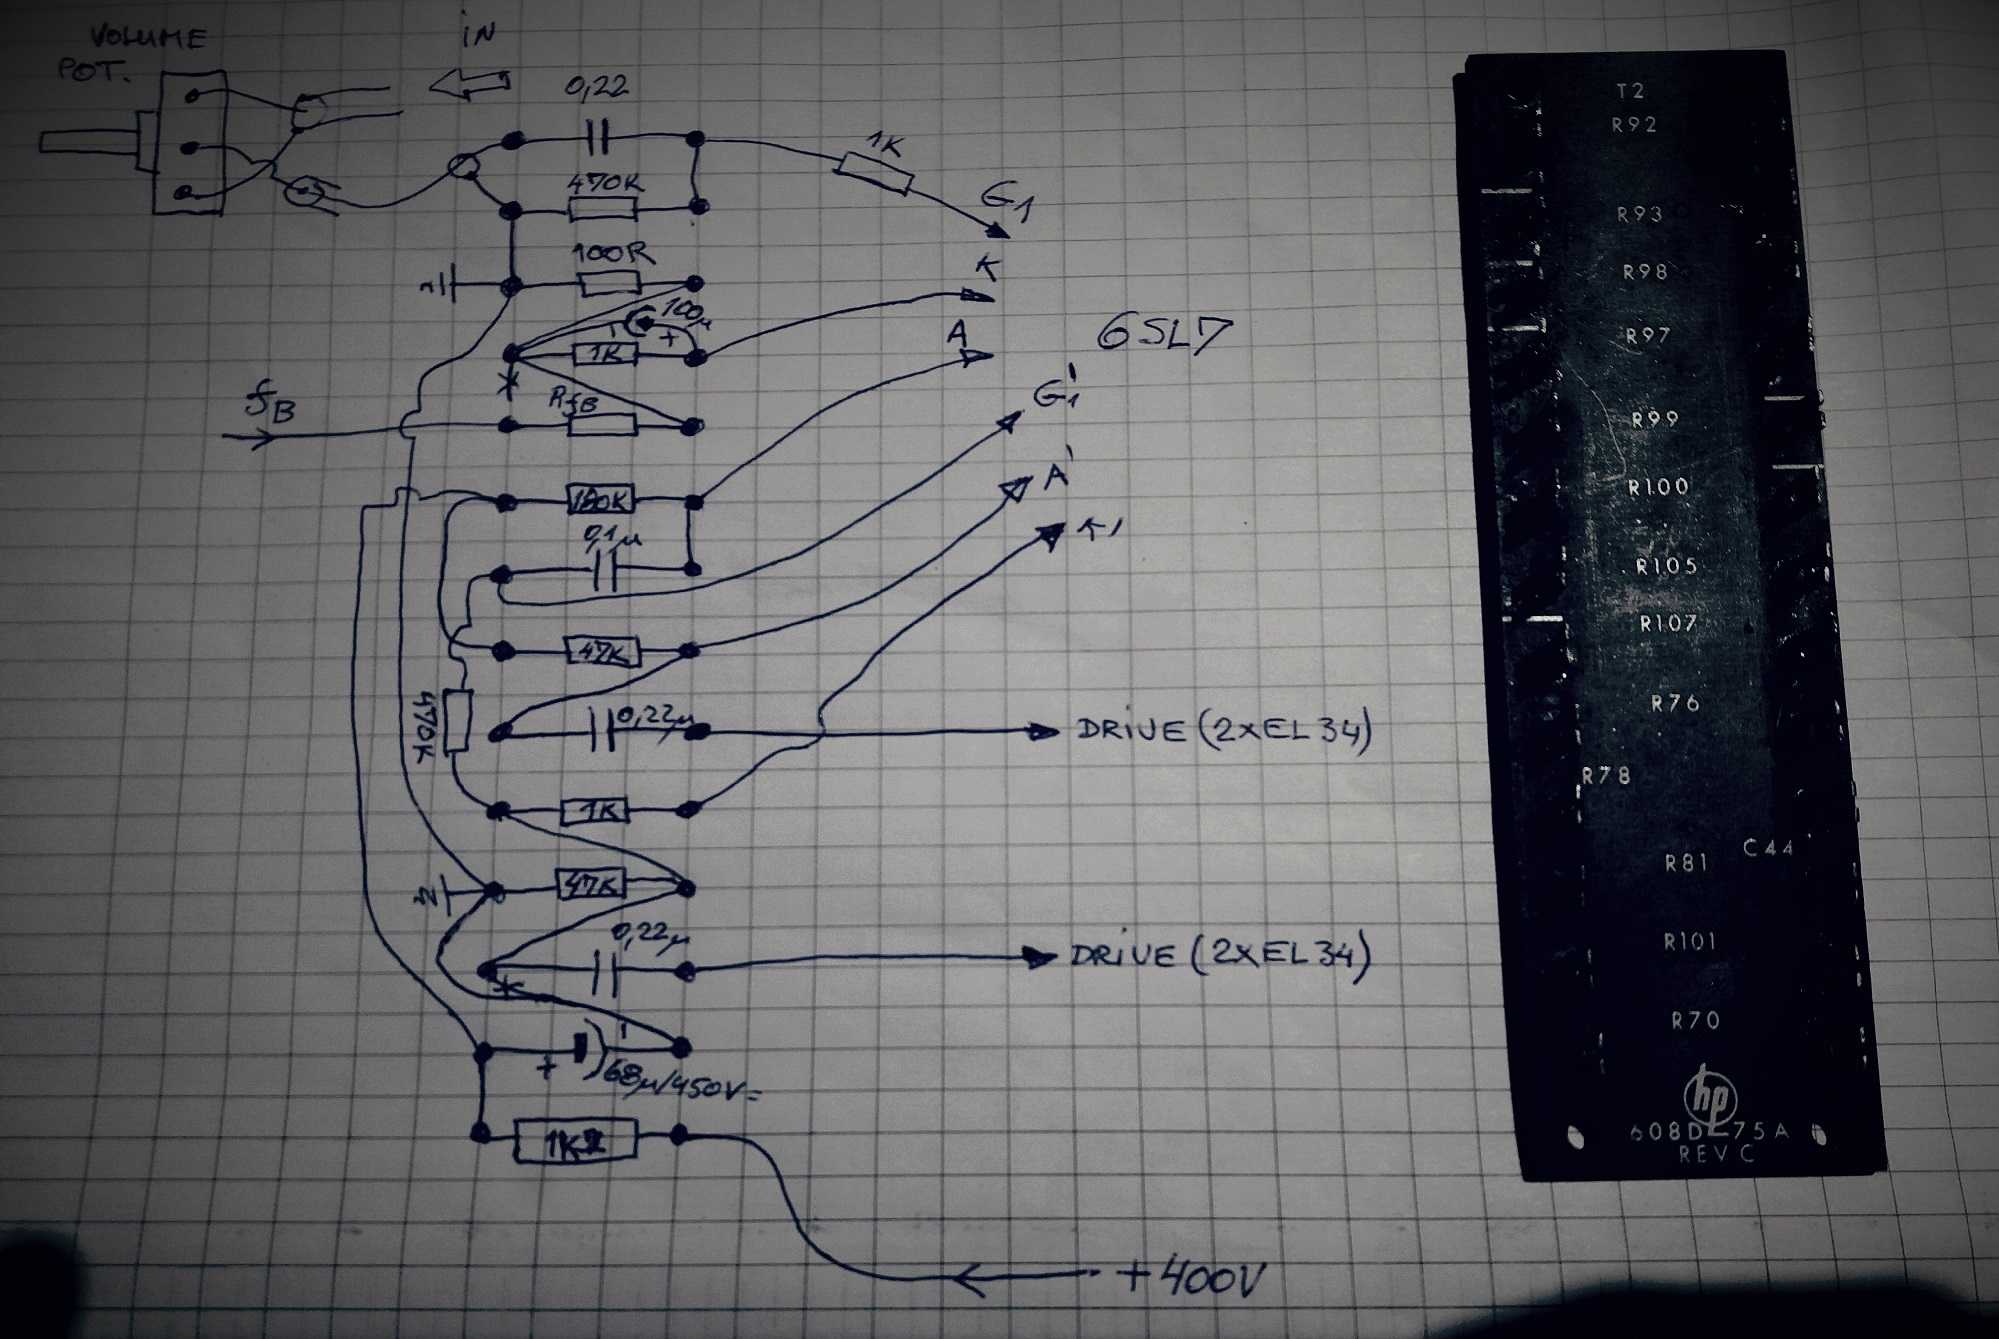 VOLUME
POT.
IN
0,22
470K
1K
G1
100R
K
100µ
+
1K
A
6SL7
fB
RfB
G1'
180K
A'
0,1µ
K'
47K
470K
0,22µ
DRIVE (2xEL34)
1K
47K
0,22µ
DRIVE (2xEL34)
+
68µ/450V=
+400V
T2
R92
R93
R98
R97
R99
R100
R105
R107
R76
R78
R81
C44
R101
R70
hp
REV C